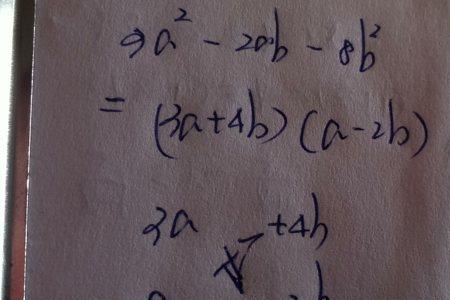 a² - 2ab - 8b²
= (3a+4b)(a-2b)
3a +4b